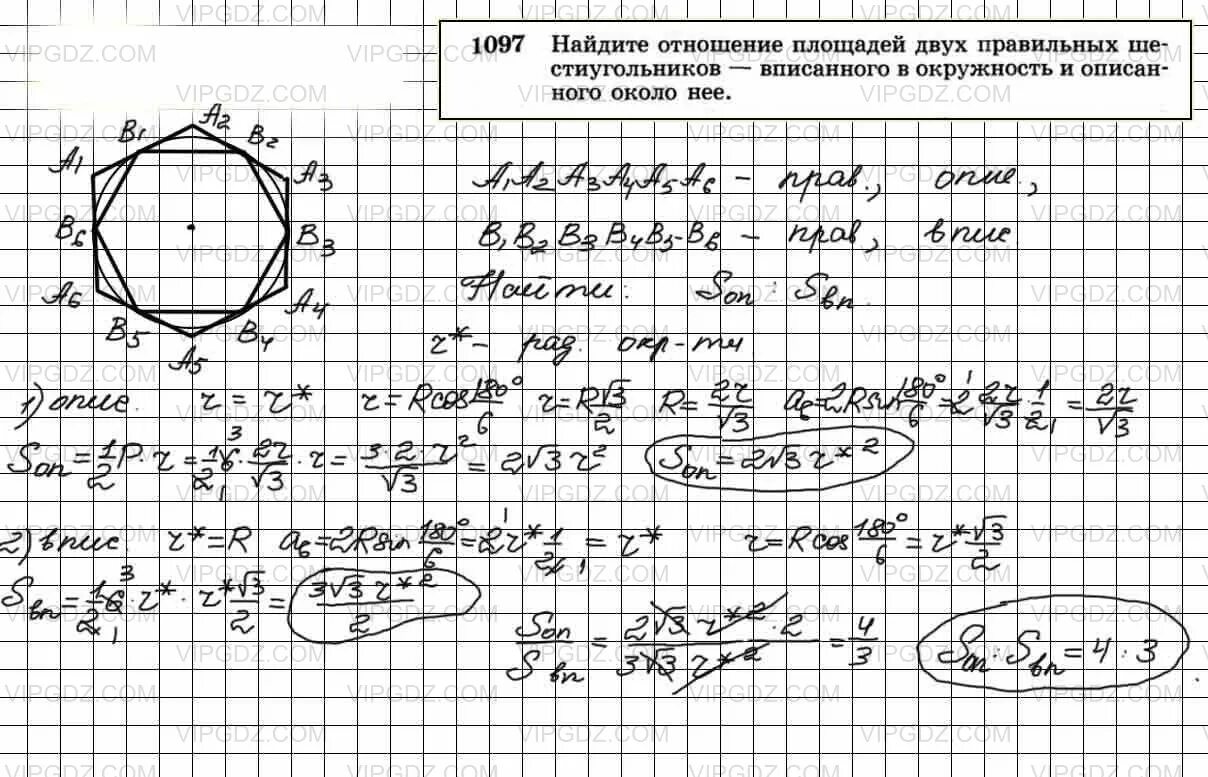 1097 Найдите отношение площадей двух правильных ше-
стиугольников — вписанного в окружность и описан-
ного около нее.
A₂
B₁ B₂
A₁ A₃
B₆ B₃
A₆ A₄
B₅ B₄
A₅
A₁A₂A₃A₄A₅A₆ – прав., опис.,
B₁B₂B₃B₄B₅B₆ – прав, впис
Найти: Sоп : Sвп.
r* – рад. окр-ти
1) опис. r = r* r = Rcos 180°/6 r = R√3/2 R = 2r/√3 a₆=2Rsin 180°/6 = 2 · 2r/√3 · 1/2 = 2r/√3
Sоп = 1/2 P · r = 1/2 · 6 · 2r/√3 · r = 3·2·r²/√3 = 2√3 r² Sоп = 2√3 r*²
2) впис. r* = R a₆=2Rsin 180°/6 = 2r* 1/2 = r* r = Rcos 180°/6 = r* √3/2
Sвп = 1/2 6 · r* · r*√3/2 = 3√3 r*²/2
Sоп/Sвп = 2√3 r*² · 2/3√3 r*² = 4/3 Sоп : Sвп = 4 : 3
VIPGDZ.COM